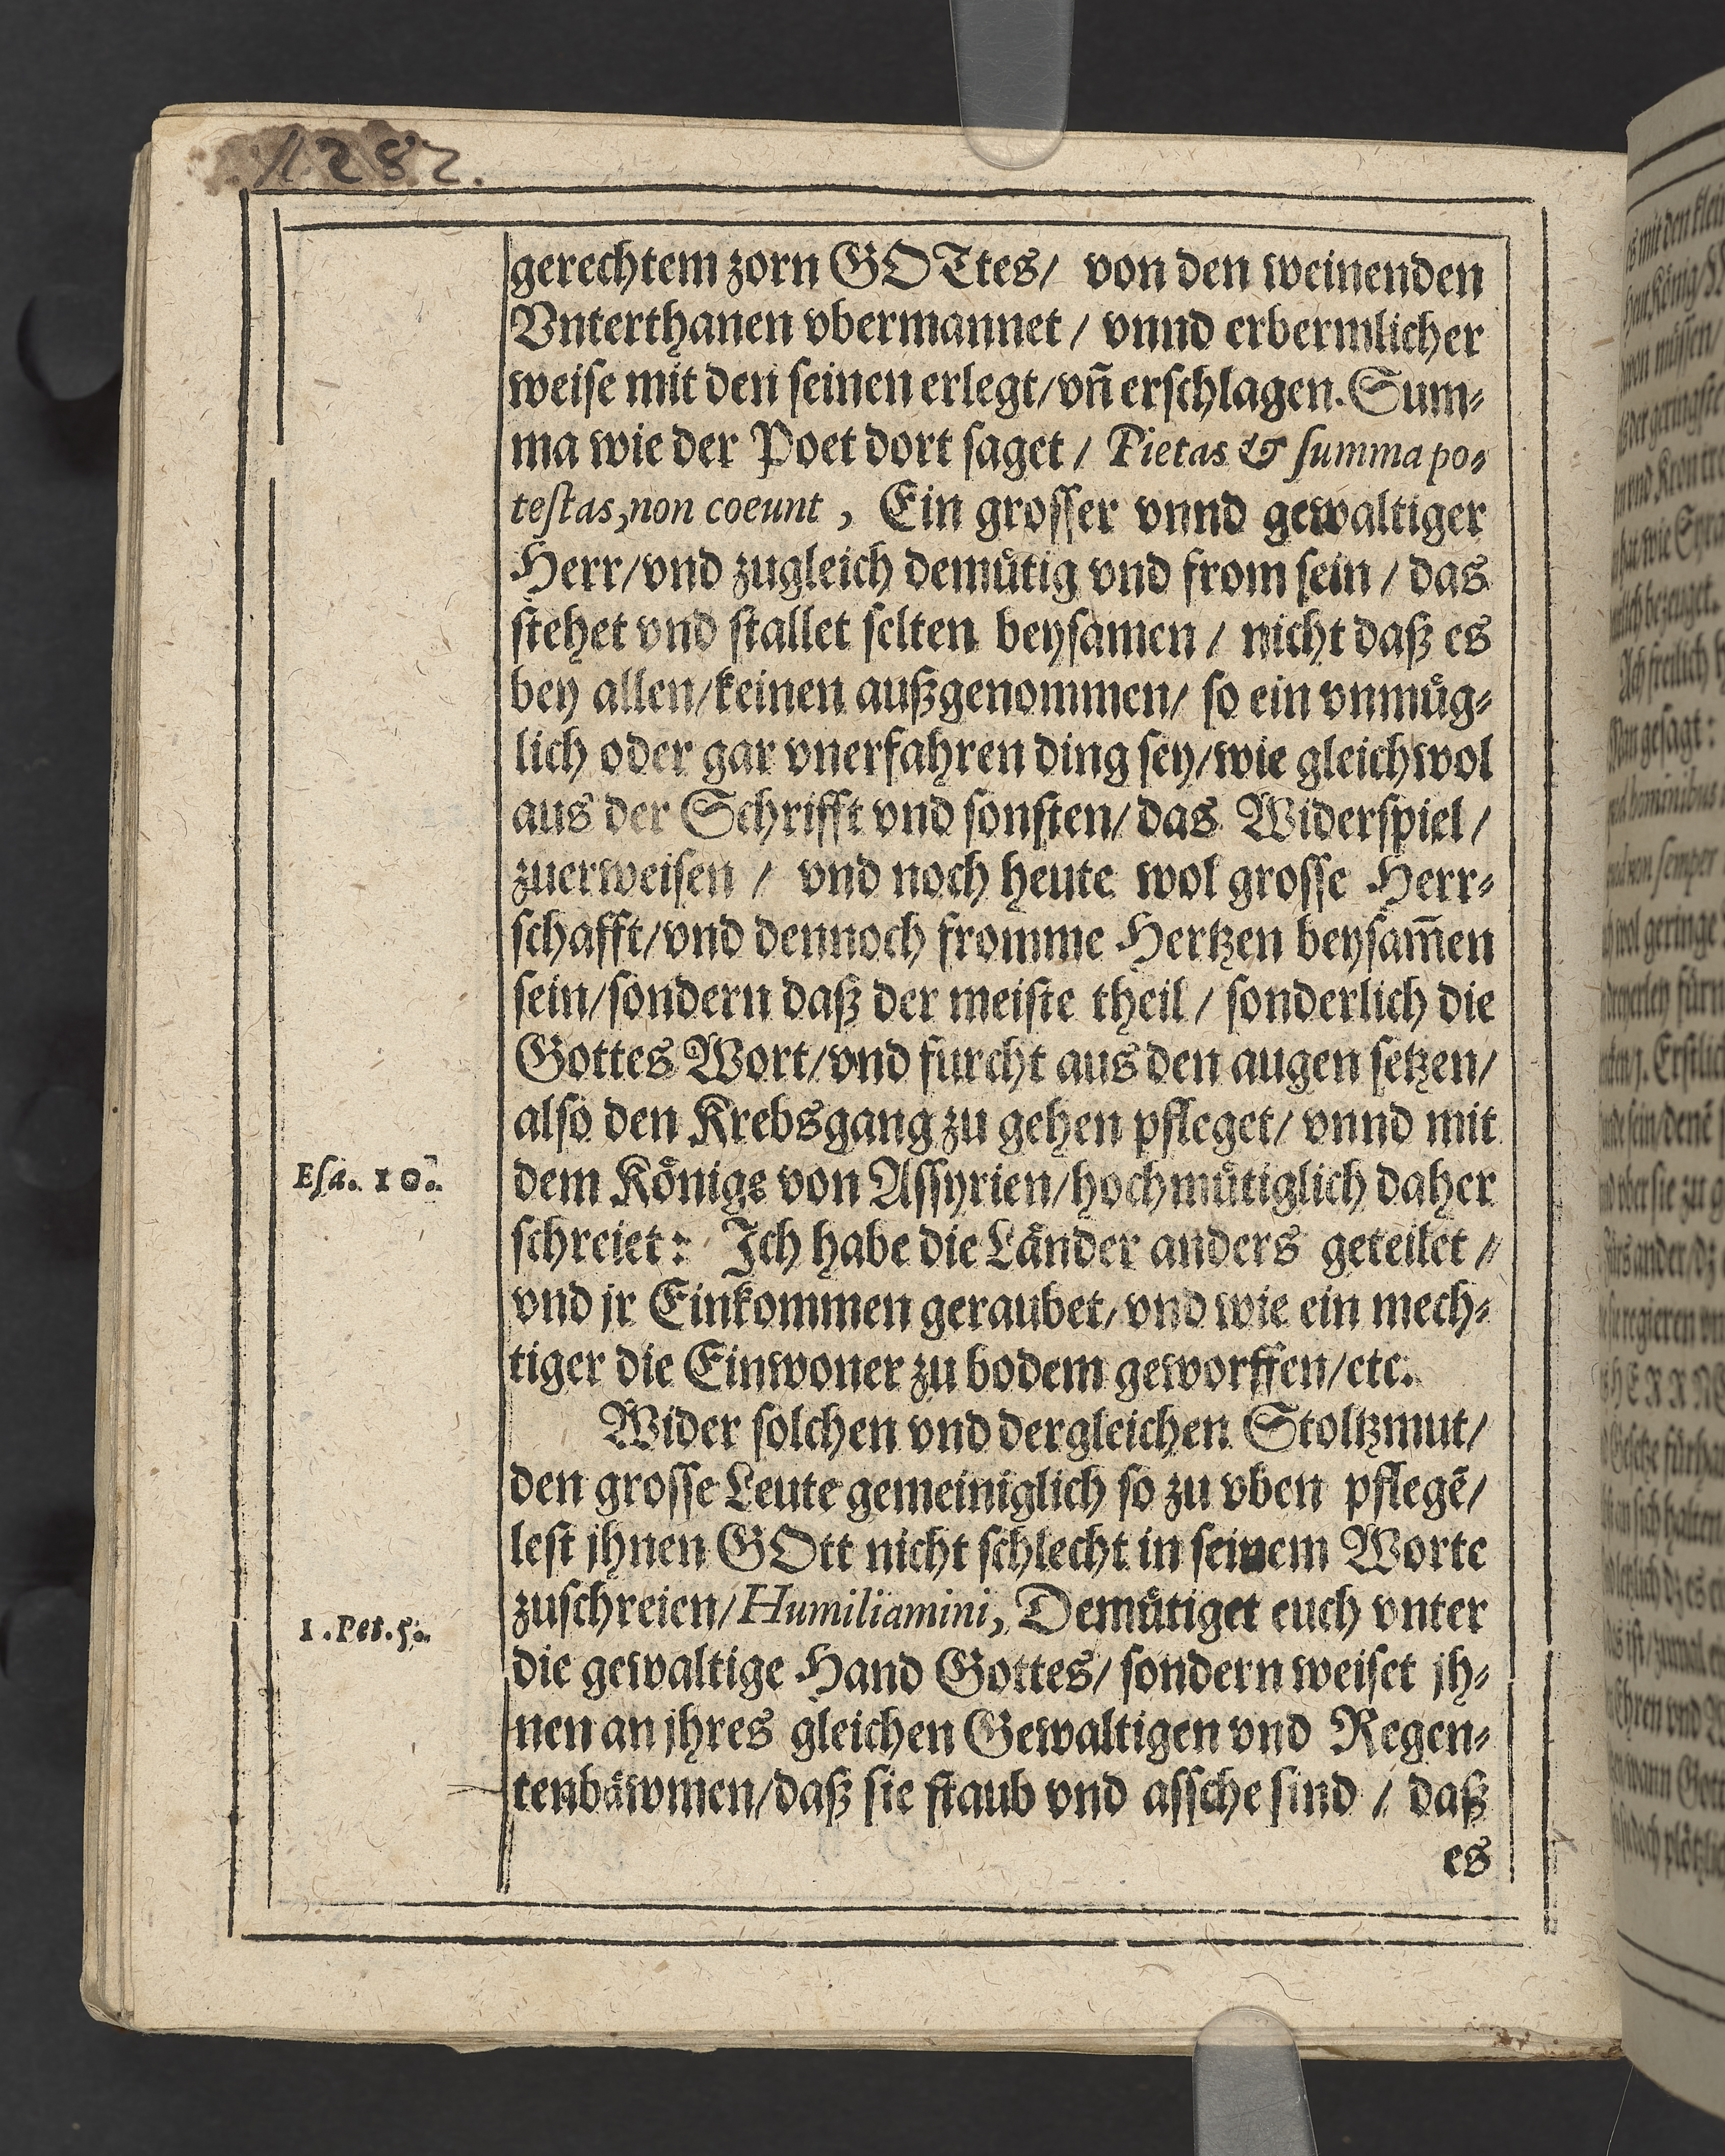 1282.
gerechtem zorn GOTtes/ von den weinenden
Vnterthanen vbermannet / vnnd erbermlicher
weise mit den seinen erlegt/vn̄ erschlagen. Sum⸗
ma wie der Poet dort saget / Pietas & summa po⸗
testas, non coeunt, Ein grosser vnnd gewaltiger
Herr/vnd zugleich demuͤtig vnd from sein / das
stehet vnd stallet selten beysamen / nicht daß es
bey allen/keinen außgenommen/ so ein vnmuͤg⸗
lich oder gar vnerfahren ding sey/wie gleichwol
aus der Schrifft vnd sonsten/das Widerspiel /
zuerweisen / vnd noch heute wol grosse Herr⸗
schafft/vnd dennoch fromme Hertzen beysam̄en
sein/sondern daß der meiste theil / sonderlich die
Gottes Wort/vnd furcht aus den augen setzen/
also den Krebsgang zu gehen pfleget/ vnnd mit
Esa. 10.
dem Koͤnige von Assyrien/hochmuͤtiglich daher
schreiet: Ich habe die Laͤnder anders geteilet /
vnd jr Einkommen geraubet/vnd wie ein mech⸗
tiger die Einwoner zu bodem geworffen/etc.
Wider solchen vnd dergleichen Stoltzmut/
den grosse Leute gemeiniglich so zu vben pflegē/
lest jhnen GOtt nicht schlecht in seinem Worte
1. Pet. 5.
zuschreien/Humiliamini, Demuͤtiget euch vnter
die gewaltige Hand Gottes/ sondern weiset jh⸗
nen an jhres gleichen Gewaltigen vnd Regen⸗
tenbaͤwmen/daß sie staub vnd assche sind / daß
es